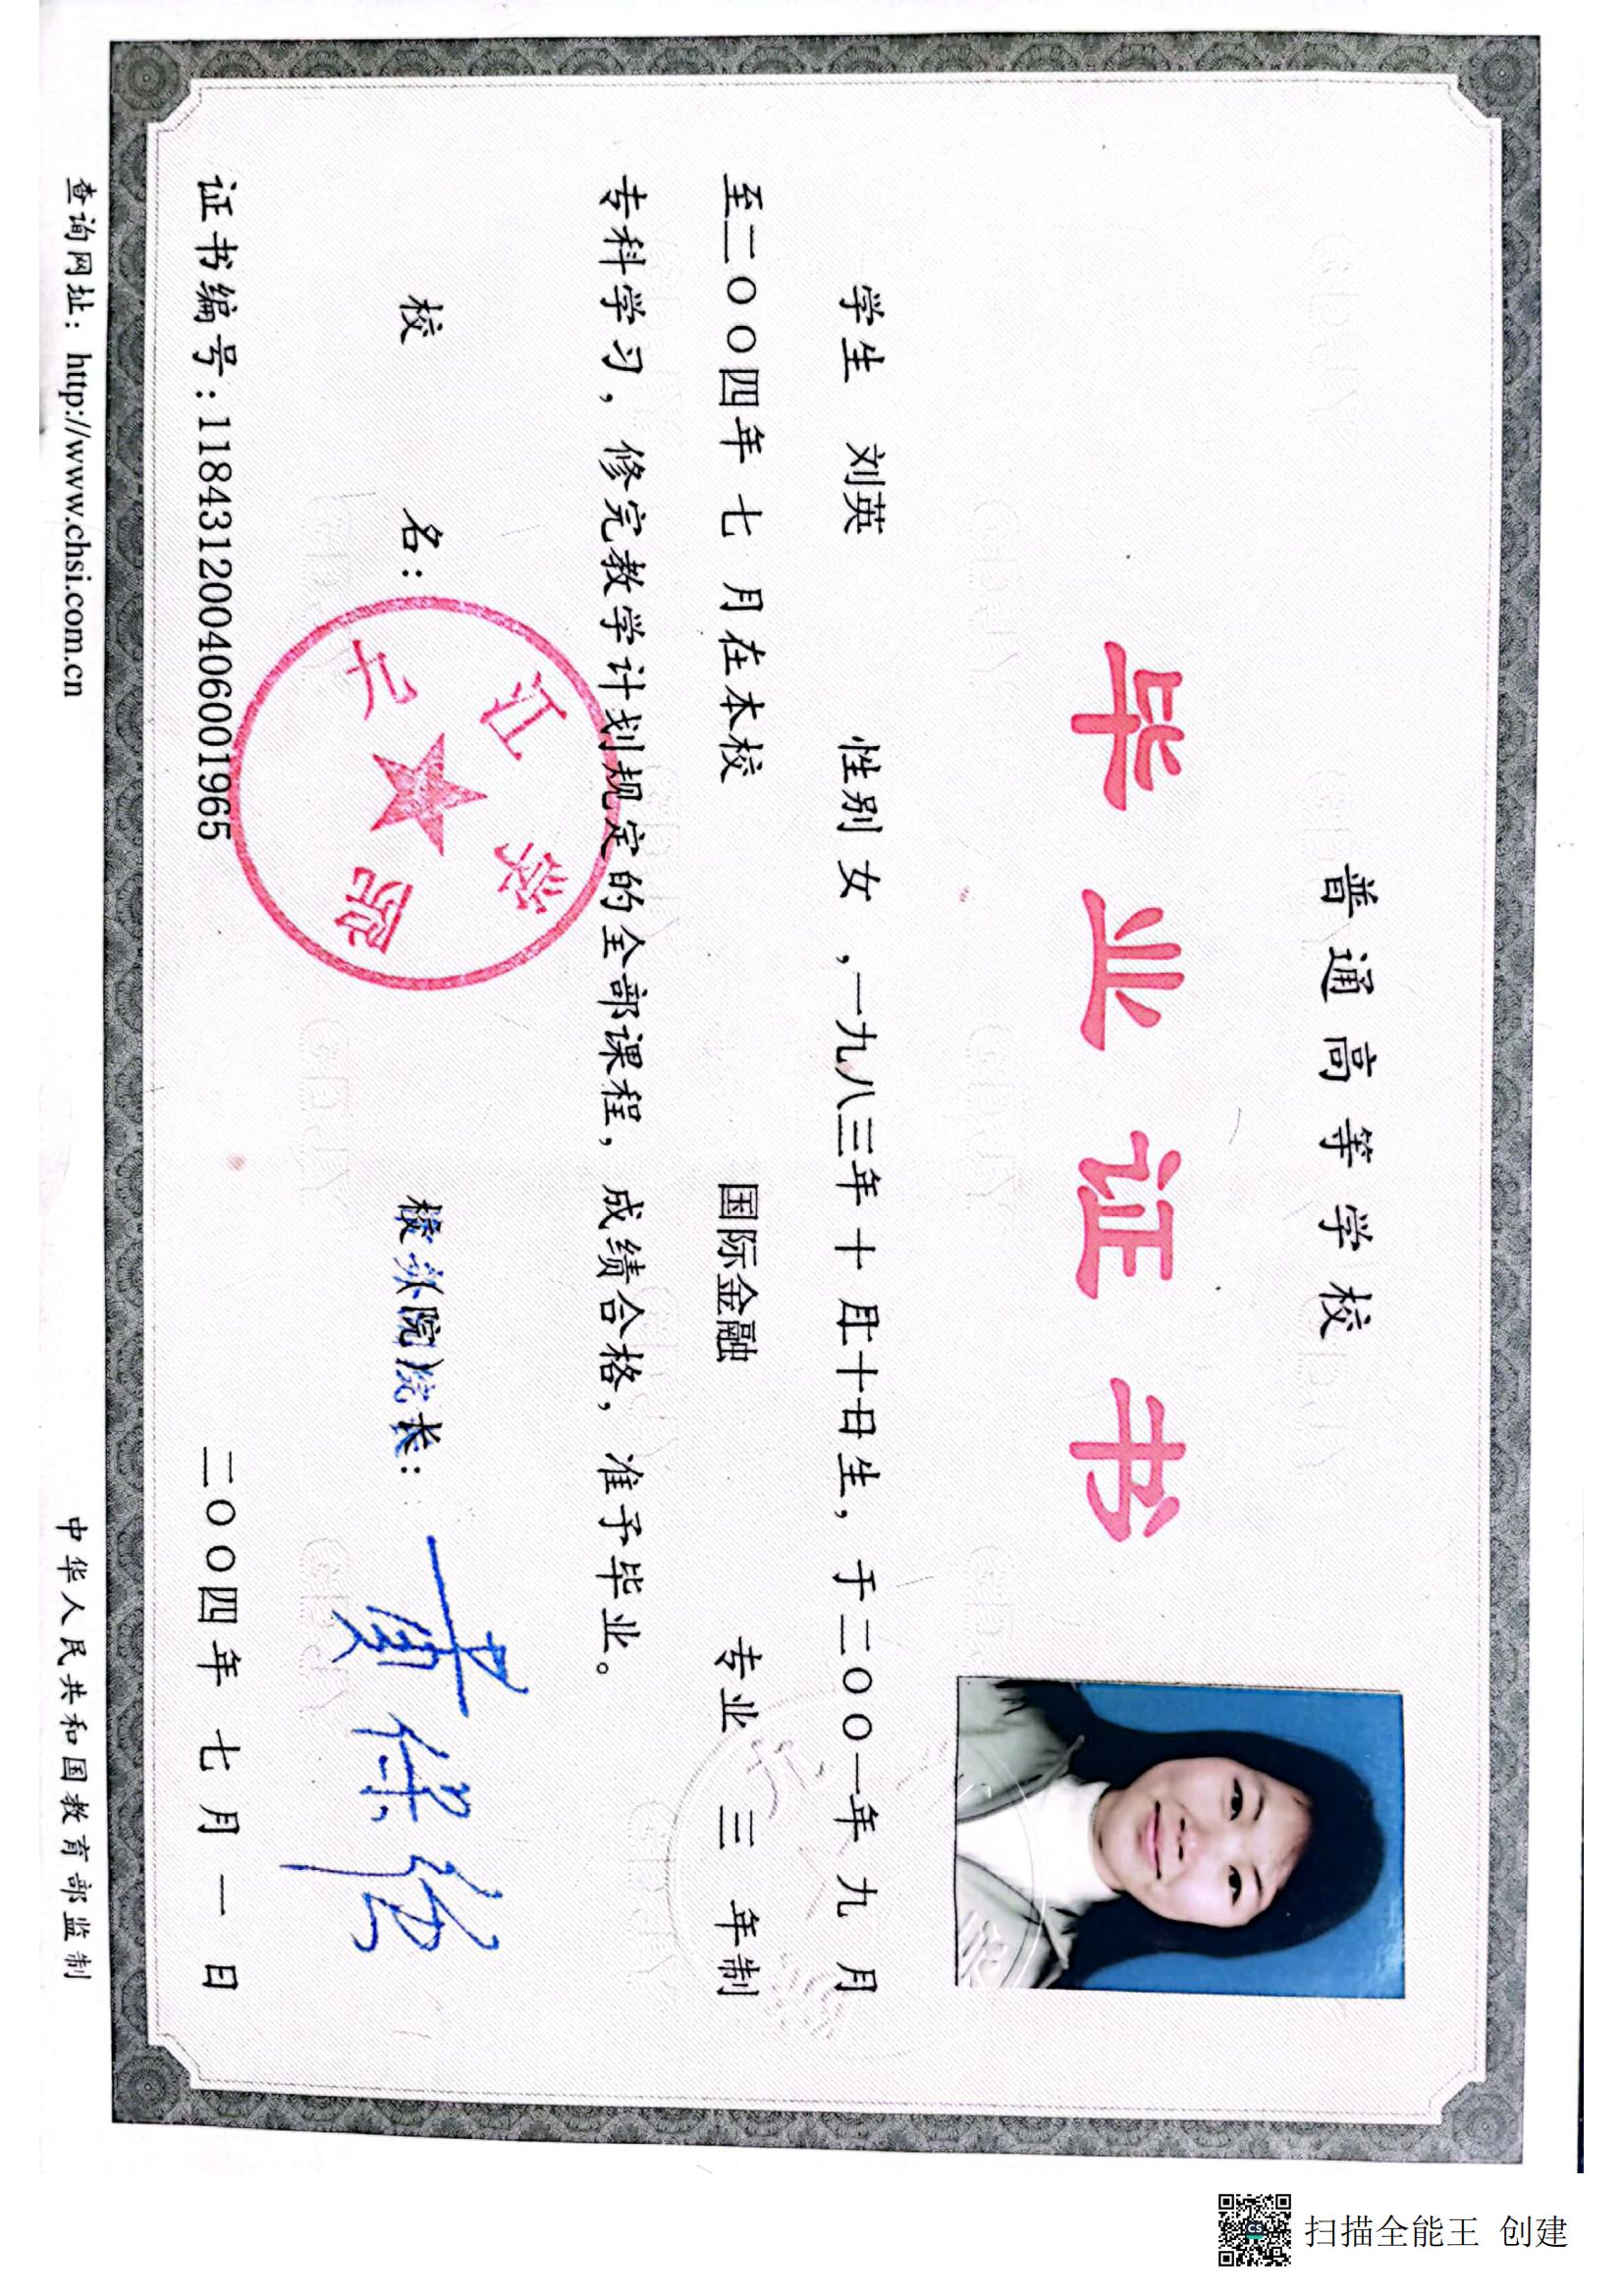 普通高等学校
毕业证书
学生 刘英 性别 女 ,一九八三年 十 月二十日生，于二〇〇一年 九 月
至二〇〇四年 七 月在本校 国际金融 专业 三 年制
专科学习，修完教学计划规定的全部课程，成绩合格，准予毕业。
校 名：
九江学院
校（院）长：
证书编号:118431200406001965
二〇〇四年 七 月 一 日
查询网址：http://www.chsi.com.cn
中华人民共和国教育部监制
扫描全能王 创建